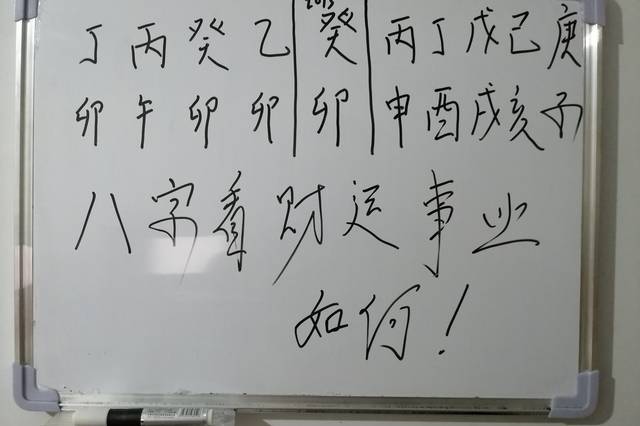 丁丙癸乙癸丙丁戊己庚
卯午卯卯卯申酉戌亥子
八字看财运事业
如何!